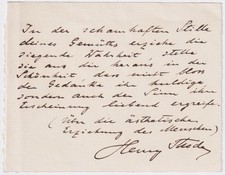 In der schamhaften Stille
deines Gemüths erziehe die
siegende Wahrheit, stelle
sie aus dir heraus in der
Schönheit, dass nicht bloss
der Gedanke ihr huldige
sondern auch der Sinn ihre
Erscheinung liebend ergreife.
(Über die ästhetische
Erziehung des Menschen)
Henry Thode